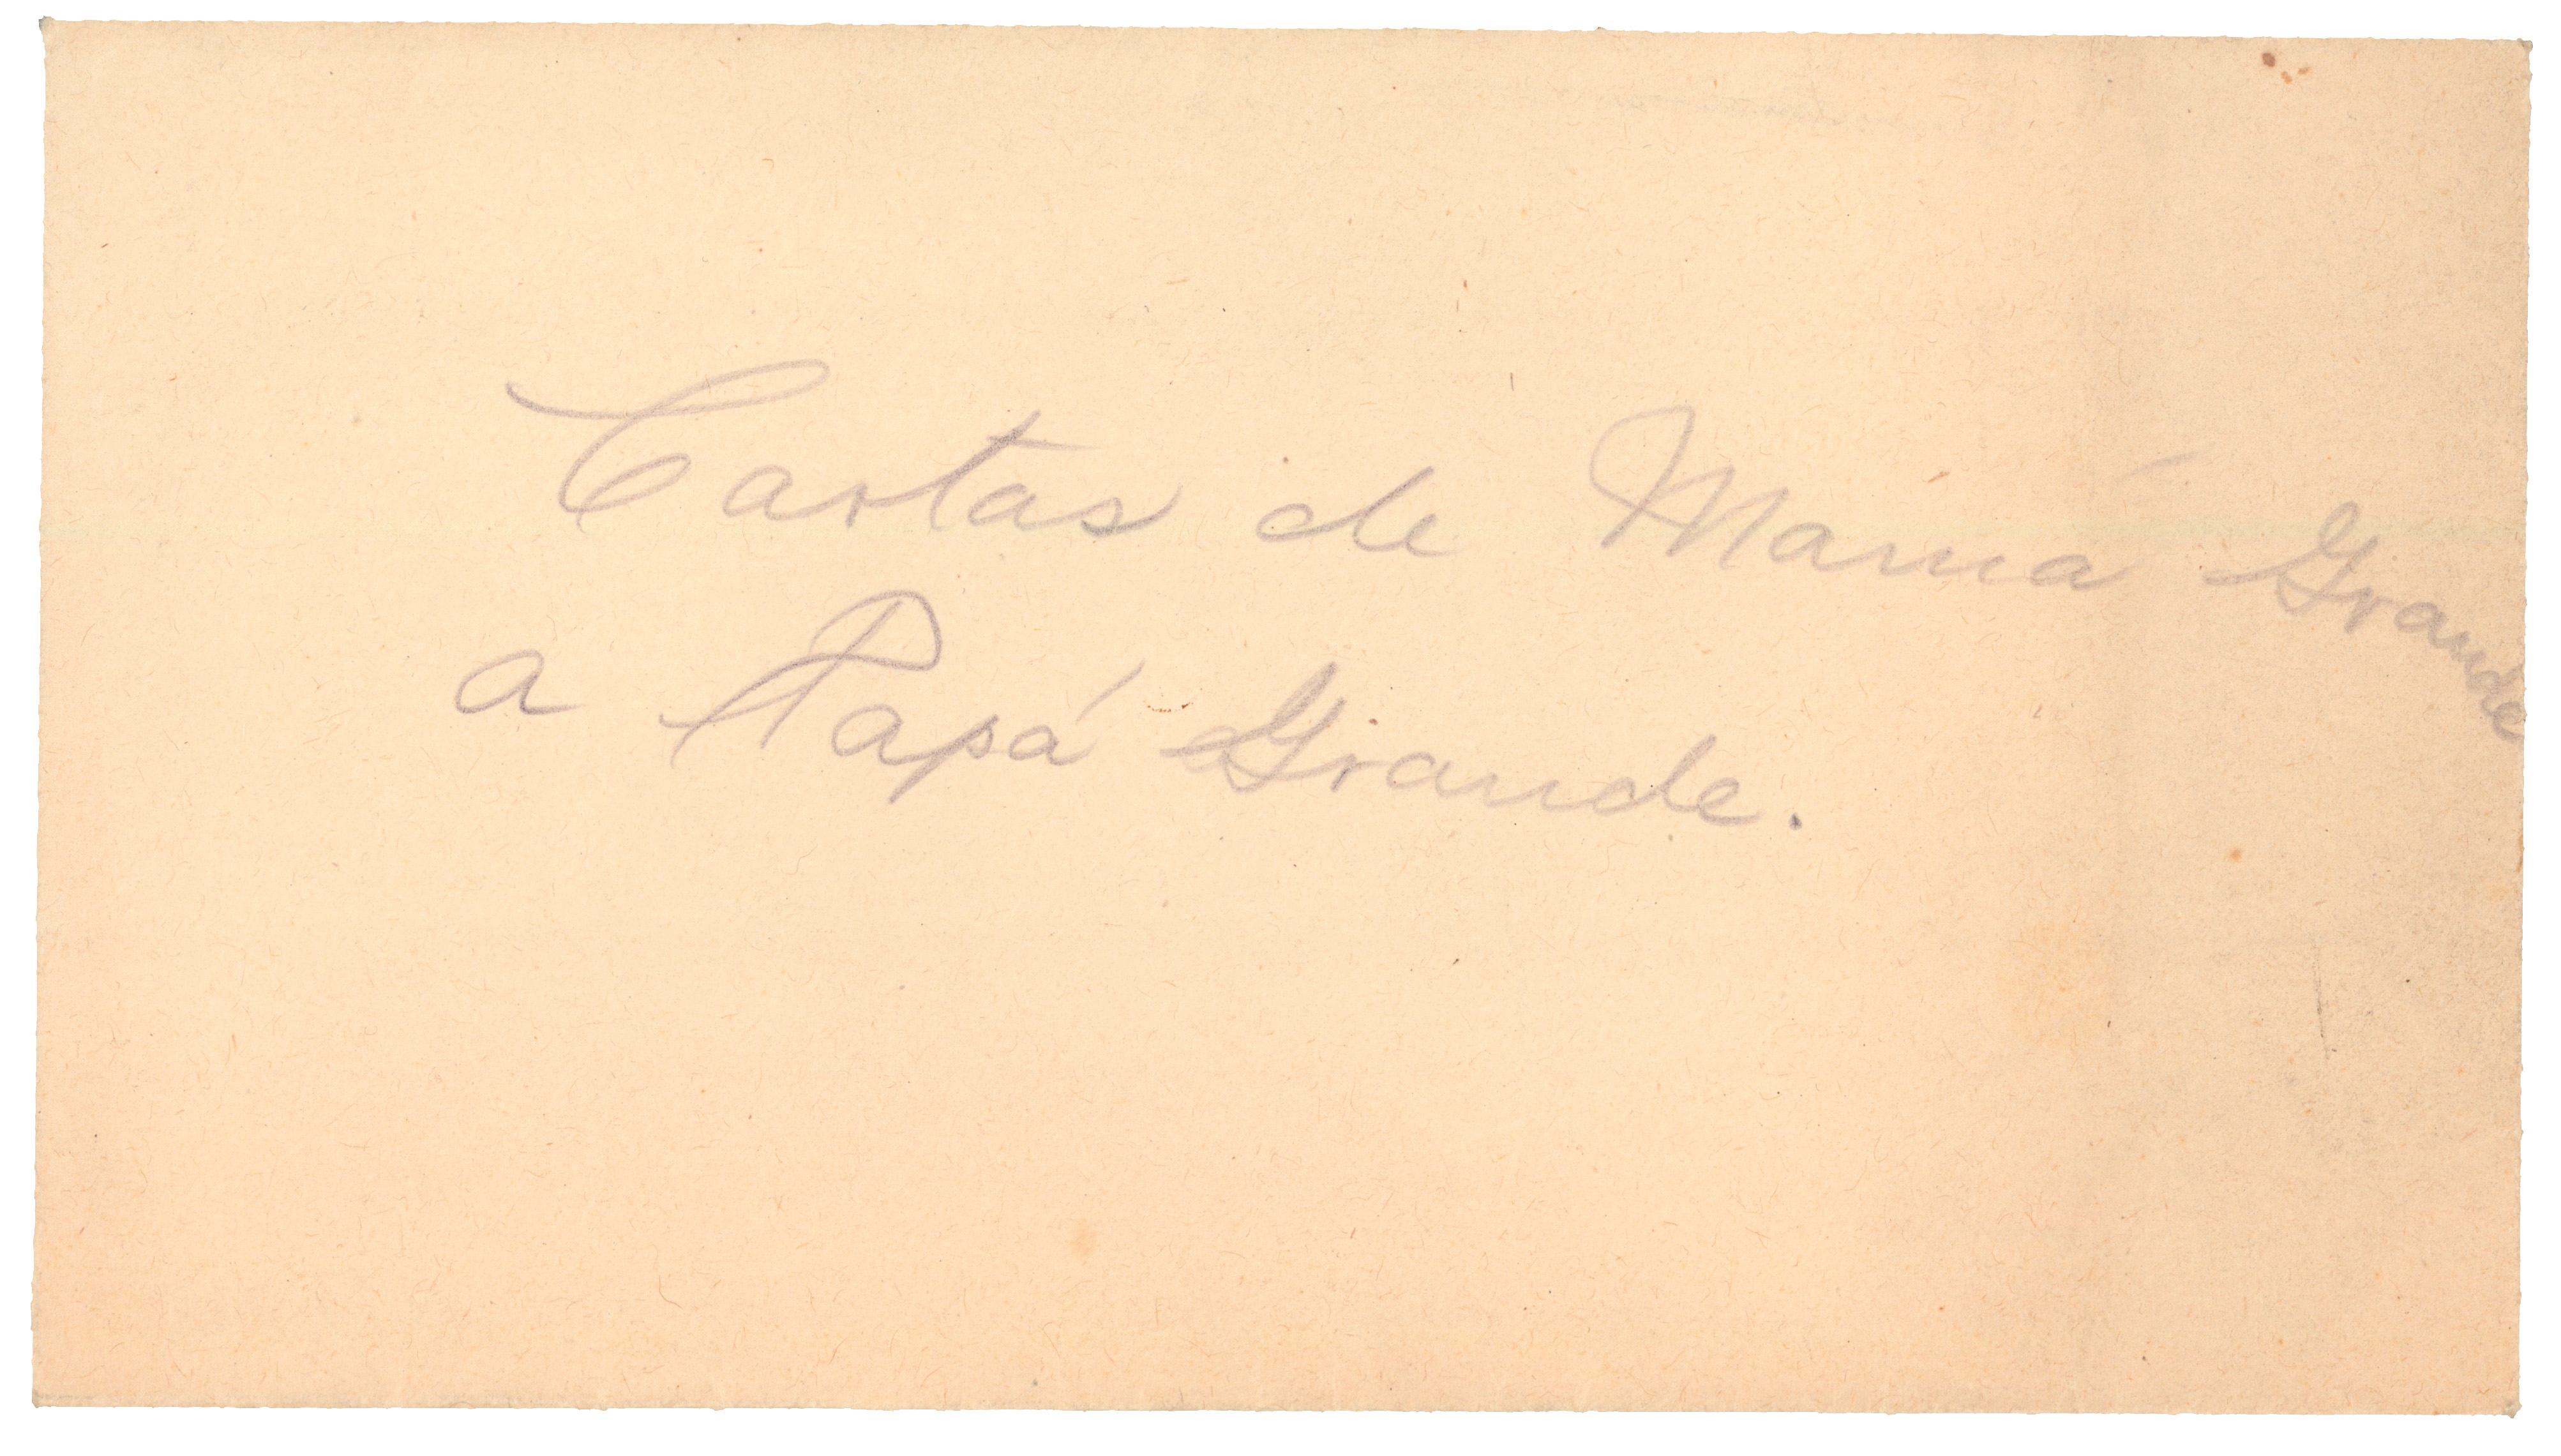 Cartas de Mamá Grande
a Papá Grande.